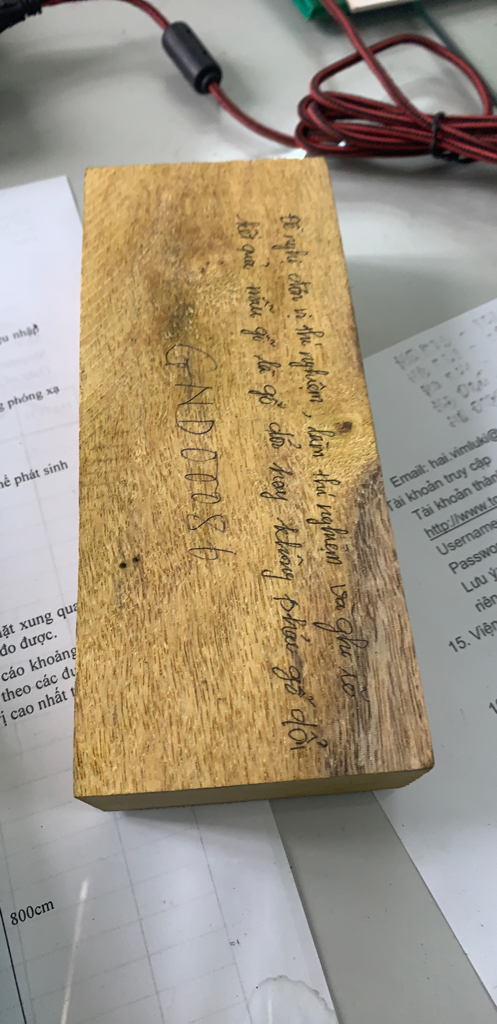 Đề nghị đơn vị thí nghiệm, làm thí nghiệm và ghi rõ
kết quả mẫu gỗ là gỗ dổi hay không phải gỗ dổi
GND00286
nhập
g phóng xạ
phát sinh
ặt xung qua
đo được.
cáo khoảng
theo các đư
ị cao nhất
800cm
Email: hai.vimluki@
Tài khoản truy cập
Tài khoản thàn
http://www.
Username
Passwo
Lưu ý
riên
15. Viên